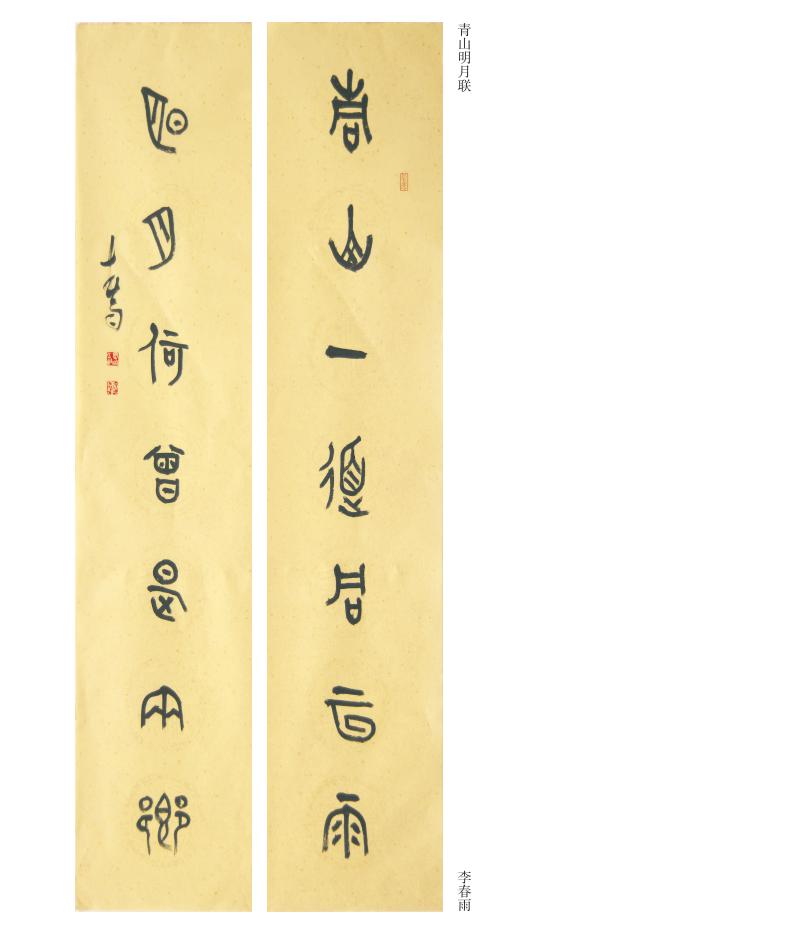 青山明月联
李春雨
青山一道同云雨
明月何曾是兩鄉